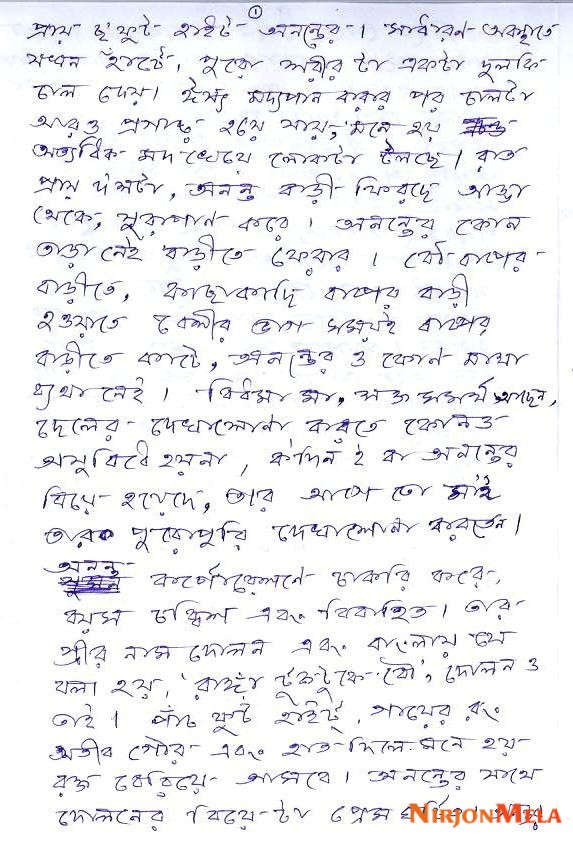 ①
প্রায় ছ'ফুট হাইট অনন্তের। সাধারণ অবস্থাতে
যখন হাঁটে, পুরো শরীর টা একটা দুলকি
চাল দেয়। ঈষৎ মদ্যপান করার পর চালটা
আরও প্রগাঢ় হয়ে যায়, মনে হয়
অত্যধিক মদ খেয়ে লোকটা টলছে। রাত
প্রায় দশটা, অনন্ত বাড়ী ফিরছে আড্ডা
থেকে, সুরাপান করে। অনন্তের কোন
তাড়া নেই বাড়ীতে ফেরার। বৌ বাপের
বাড়ীতে, কাছাকাছি বাপের বাড়ী
হওয়াতে বেশীর ভাগ সময়ই বাপের
বাড়ীতে কাটে, অনন্তের ও কোন মাথা
ব্যথা নেই। বিধবা মা, শক্ত সমর্থ আছেন,
ছেলের দেখাশোনা করতে কোনও
অসুবিধে হয়না, ক'দিন ই বা অনন্তের
বিয়ে হয়েছে, তার আগে তো মা'ই
তার পুরোপুরি দেখাশোনা করতেন।
অনন্ত
কর্পোরেশনে চাকরি করে,
বয়স চব্বিশ এবং বিবাহিত। তার
স্ত্রীর নাম দোলন এবং বাংলায় যে
বলা হয়, 'রাঙ্গা টুকটুকে বৌ', দোলন ও
তাই। পাঁচ ফুট হাইট, গায়ের রং
অতীব গৌর এবং হাত দিলে মনে হয়
রক্ত বেরিয়ে আসবে। অনন্তের সাথে
দোলনের বিয়ে টা প্রেম
NIRJONMELA